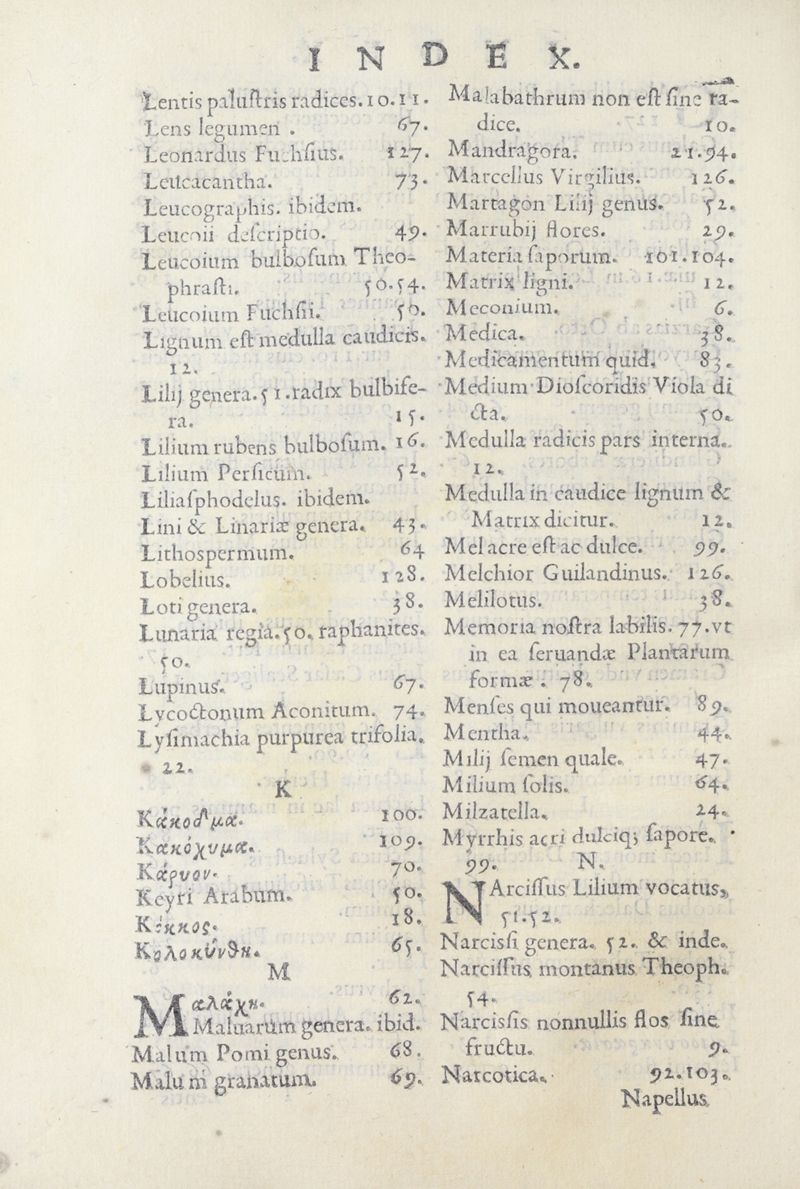 INDEX.
Lentis paluſtris radices. 10.11.
Lens legumen . 67.
Leonardus Fuchſius. 127.
Leucacantha. 73.
Leucographis. ibidem.
Leucoii deſcriptio. 49.
Leucoium bulboſum Theo-
phraſti. 50.54.
Leucoium Fuchſii. 50.
Lignum eſt medulla caudicis.
12.
Lilij genera. 51. radix bulbife-
ra. 15.
Lilium rubens bulboſum. 16.
Lilium Perſicum. 52.
Liliaſphodelus. ibidem.
Lini & Linariæ genera. 43.
Lithospermum. 64
Lobelius. 128.
Loti genera. 38.
Lunaria regia. 50. raphanites.
50.
Lupinus. 67.
Lycoctonum Aconitum. 74.
Lyſimachia purpurea trifolia.
22.
K
Κάκοδμα. 100.
Κακόχυμα. 109.
Κάρυον. 70.
Keyri Arabum. 50.
Κόκκος. 18.
Κολοκύνθη. 65.
M
Μαλάχη. 62.
Maluarum genera. ibid.
Malum Pomi genus. 68.
Malum granatum. 69.
Malabathrum non eſt ſine ra-
dice. 10.
Mandragora. 21.94.
Marcellus Virgilius. 126.
Martagon Lilij genus. 52.
Marrubij flores. 29.
Materia ſaporum. 101.104.
Matrix ligni. 12.
Meconium. 6.
Medica. 38.
Medicamentum quid. 83.
Medium Dioſcoridis Viola di
cta. 50.
Medulla radicis pars interna.
12.
Medulla in caudice lignum &
Matrix dicitur. 12.
Mel acre eſt ac dulce. 99.
Melchior Guilandinus. 126.
Melilotus. 38.
Memoria noſtra labilis. 77. vt
in ea ſeruandæ Plantarum
formæ . 78.
Menſes qui moueantur. 89.
Mentha. 44.
Milij ſemen quale. 47.
Milium ſolis. 64.
Milzatella. 24.
Myrrhis acri dulciq; ſapore.
99.
N.
NArciſſus Lilium vocatus,
51.52.
Narcisſi genera. 52. & inde.
Narciſſus montanus Theoph.
54.
Narcisſis nonnullis flos ſine
fructu. 9.
Narcotica. 92.103.
Napellus